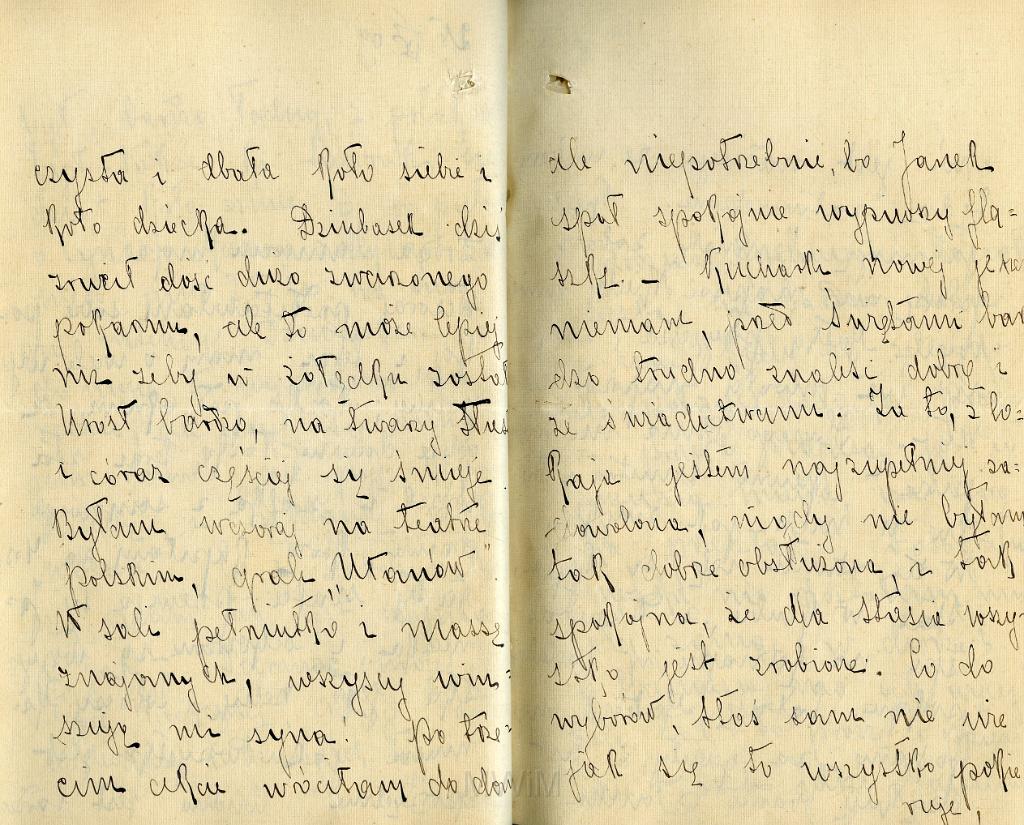 czysta i dbała koło siebie i
koło dziecka. Dziubasek dziś
zrucił dość dużo zwarzonego
pokarmu, ale to może lepiej
niż żeby w żołądku został
Urósł bardzo, na twarzy
i coraz częściej się śmieje.
Byłam wczoraj na teatrze
polskim, grali „Ułanów".
W sali pełniutko i massę
znajomych, wszyscy win-
szują mi syna! Po trze-
cim akcie wróciłam do dom
ale niepotrzebnie, bo Janek
spał spokojnie wypiwszy fla=
szkę. – Kucharki nowej jeszcze
niemam, przed Świętami bar
dzo trudno znaleść dobrą i
ze świadectwami. Za to, z lo-
kaja jestem najzupełniej za=
dowolona, nigdy nie byłam
tak dobrze obsłużona, i tak
spokojna, że dla Stasia wszy-
stko jest zrobione. Co do
wyborów, Staś sam nie wie
jak się to wszystko pokie
ruje,